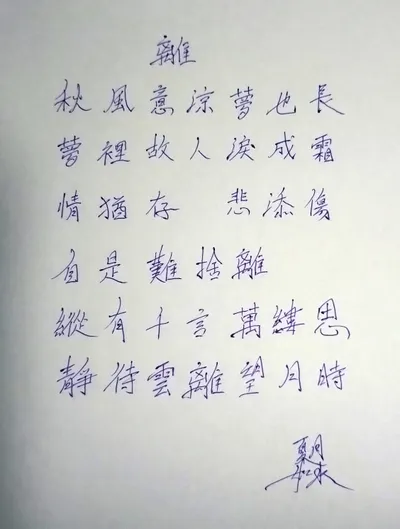 離
秋風意涼夢也長
夢裡故人淚成霜
情猶存 悲添傷
自是難捨離
縱有千言萬縷思
靜待雲離望月時